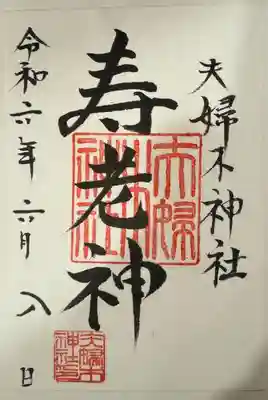 夫婦木神社
寿老神
令和六年 六月 八日
夫婦木神社
夫婦木
神社印